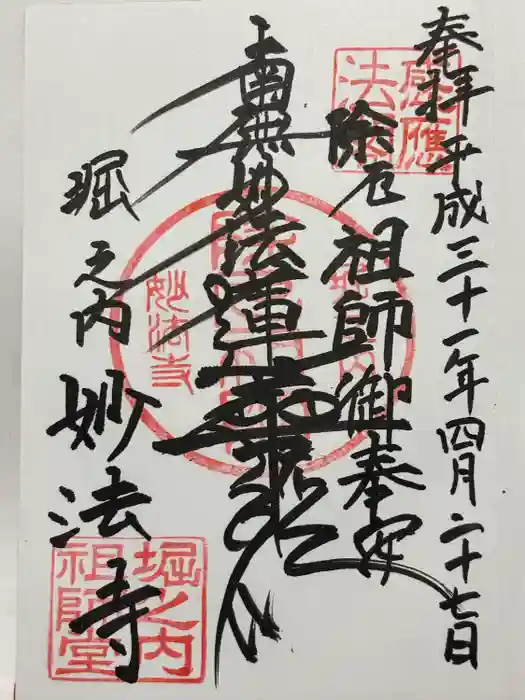 奉拝 平成三十一年四月二十七日
除厄 祖師御奉安
南無妙法蓮華経
堀之内 妙法寺
感應
法
妙法寺
堀之内
祖師堂